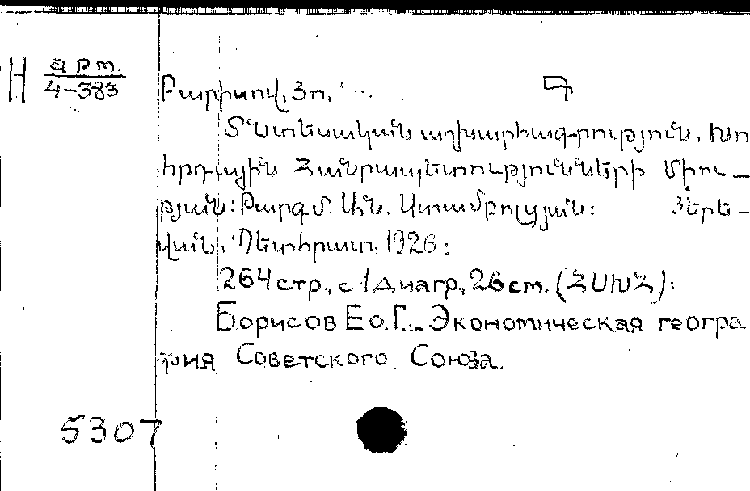 Н арт.
4-383
Բարիսով, Յո.
Տնտեսական աշխարհագրություն. Խո
հրդային Հանրապետությունների Միու-
թյան: Թարգմ. Ան. Ստամբոլցյան: Յերե-
վան, Պետհրատ, 1926:
264 стр., с 1 диагр, 26 см. (ՀՍԽՀ):
Борисов Ео. Г. Экономическая геогра
фия Советского Союза.
5307